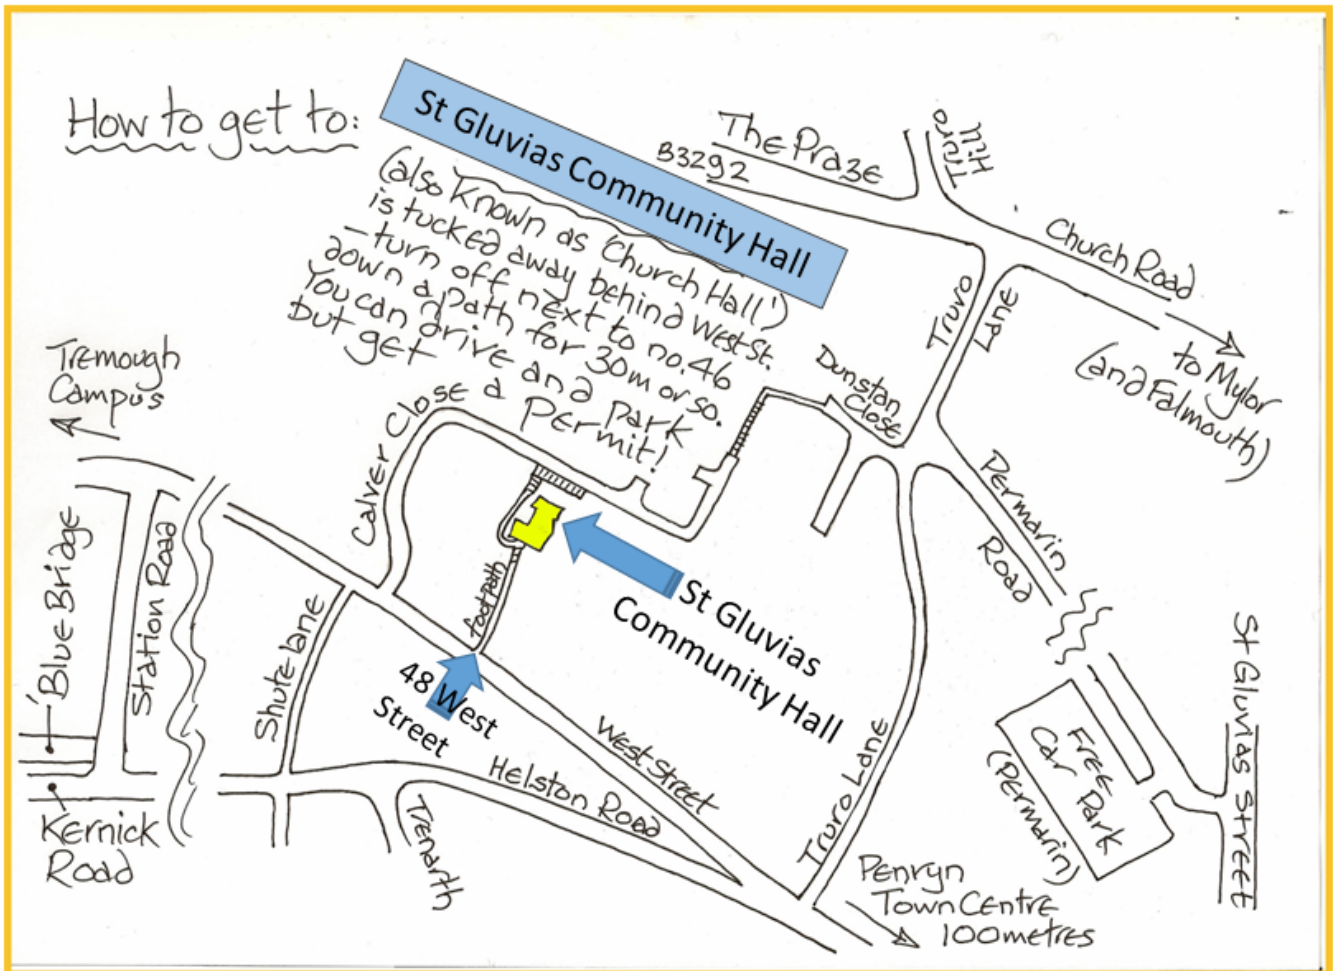 How to get to:
St Gluvias Community Hall
(also known as 'Church Hall')
is tucked away behind West St.
- turn off next to no. 46
down a path for 30m or so.
You can drive and park
but get a Permit!
The Praze
B3292
Truro
Hill
Church Road
to Mylor
(and Falmouth)
Truro
Lane
Dunstan
Close
Permarin
Road
Tremough
Campus
Calver Close
Blue Bridge
Station Road
Shute lane
footpath
St Gluvias
Community Hall
48 West
Street
West Street
Helston Road
Trenarth
Kernick
Road
Truro Lane
Free
Car Park
(Permarin)
St Gluvias Street
Penryn
Town Centre
100 metres